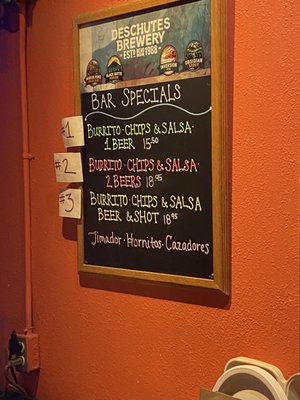 DESCHUTES
BREWERY
BAR SPECIALS
#1
BURRITO · CHIPS & SALSA ·
1 BEER 15⁵⁰
#2
BURRITO · CHIPS & SALSA ·
2 BEERS 18.⁹⁵
#3
BURRITO · CHIPS & SALSA
BEER & SHOT 18⁹⁵
Jimador · Hornitos · Cazadores